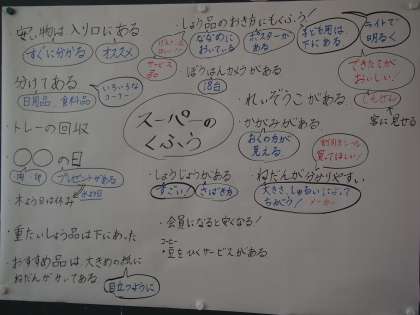 安い物は入り口にある
すぐに分かる
オススメ
分けてある
いろいろな
コーナー
日用品
食料品
・トレーの回収
・〇〇の日
プレゼントがある
木よう日は休み
・重たいしょう品は下にあった
・おすすめ品は大きめの紙に
ねだんがかいてある
目立つように
スーパーの
くふう
・しょう品のおき方にもくふう!
サービス
品
ななめに
おいている
ポスターが
ある
子ども用は
下にある
ライトで
明るく
できたてが
おいしい!
・ぼうはんカメラがある
18台
・れいぞうこがある
しせん
客に見せる
・かがみがある
おくの方が
見える
買ってほしい!
・しょりじょうがある
すごい!
さばき方
・ねだんが分かりやすい
大きさ、しゅるいによって
ちがう!
メーカー
・会員になると安くなる!
コーヒー
・豆をひくサービスがある